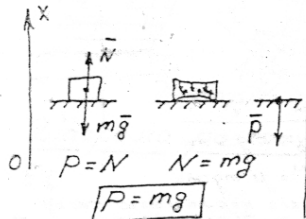 X
N̄
mḡ
P̄
O
P = N N = mg
P = mg